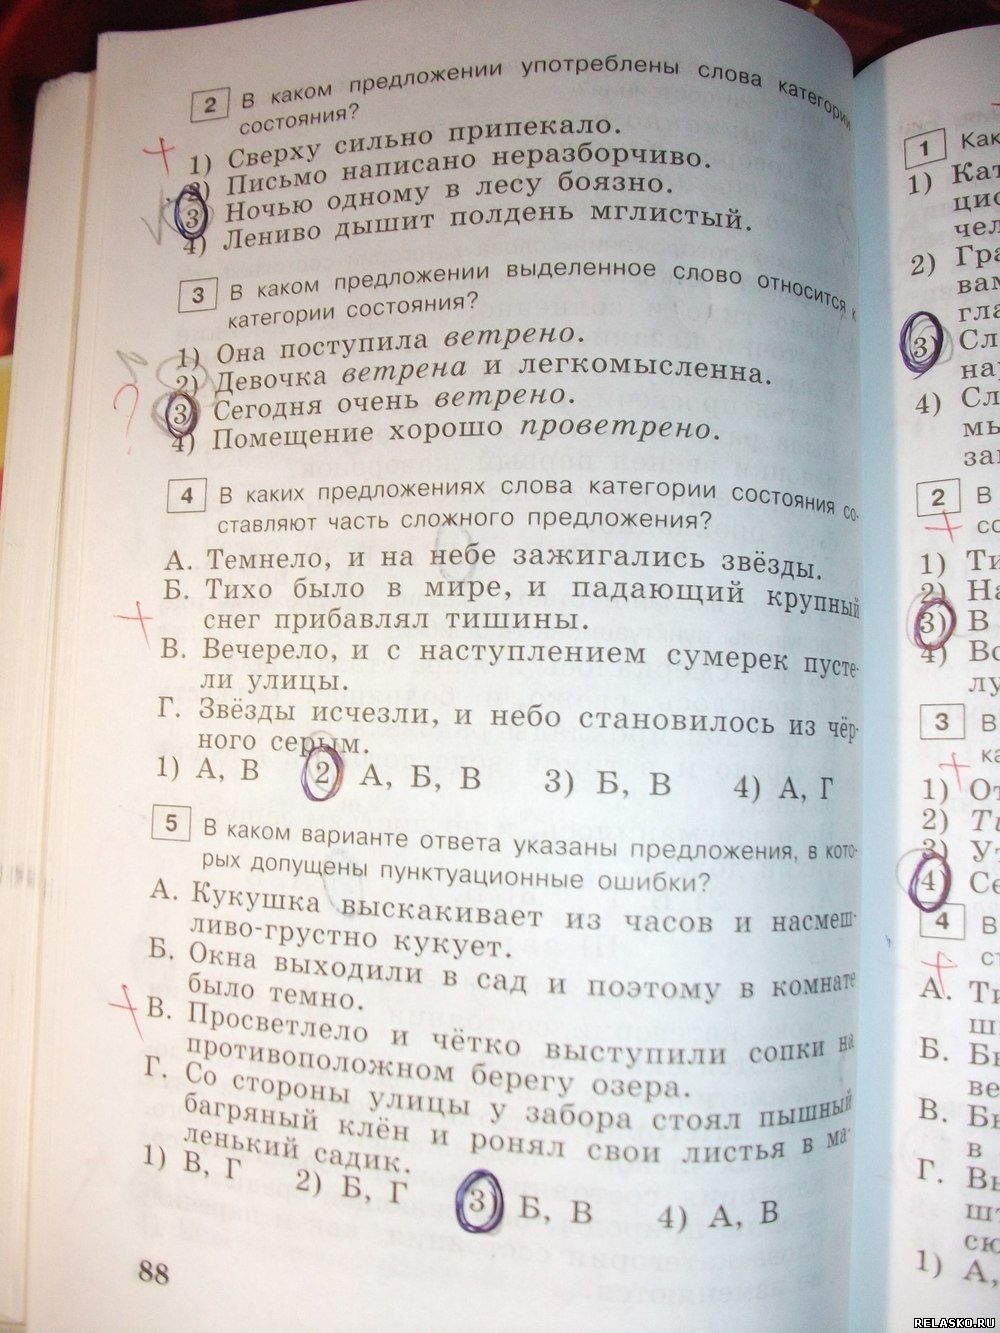 2 В каком предложении употреблены слова категории
состояния?
1) Сверху сильно припекало.
2) Письмо написано неразборчиво.
3) Ночью одному в лесу боязно.
4) Лениво дышит полдень мглистый.
3 В каком предложении выделенное слово относится к
категории состояния?
1) Она поступила ветрено.
2) Девочка ветрена и легкомысленна.
3) Сегодня очень ветрено.
4) Помещение хорошо проветрено.
4 В каких предложениях слова категории состояния со-
ставляют часть сложного предложения?
А. Темнело, и на небе зажигались звёзды.
Б. Тихо было в мире, и падающий крупный
снег прибавлял тишины.
В. Вечерело, и с наступлением сумерек пусте-
ли улицы.
Г. Звёзды исчезли, и небо становилось из чёр-
ного серым.
1) А, В 2) А, Б, В 3) Б, В 4) А, Г
5 В каком варианте ответа указаны предложения, в кото-
рых допущены пунктуационные ошибки?
А. Кукушка выскакивает из часов и насмеш-
ливо-грустно кукует.
Б. Окна выходили в сад и поэтому в комнате
было темно.
В. Просветлело и чётко выступили сопки на
противоположном берегу озера.
Г. Со стороны улицы у забора стоял пышный
багряный клён и ронял свои листья в ма-
ленький садик.
1) В, Г 2) Б, Г 3) Б, В 4) А, В
88
1 Как
1) Кат
цис
чел
2) Гра
вам
гла
3) Сл
на
4) Сл
мы
за
2 В
со
1) Ти
2) На
3) В
4) Во
лу
3 В
ка
1) От
2) Ти
3) Ут
4) Се
4 В
ст
А. Ти
ш
Б. Бы
ве
В. Бы
в
Г. Вы
шт
сю
1) А,
RELASKO.RU